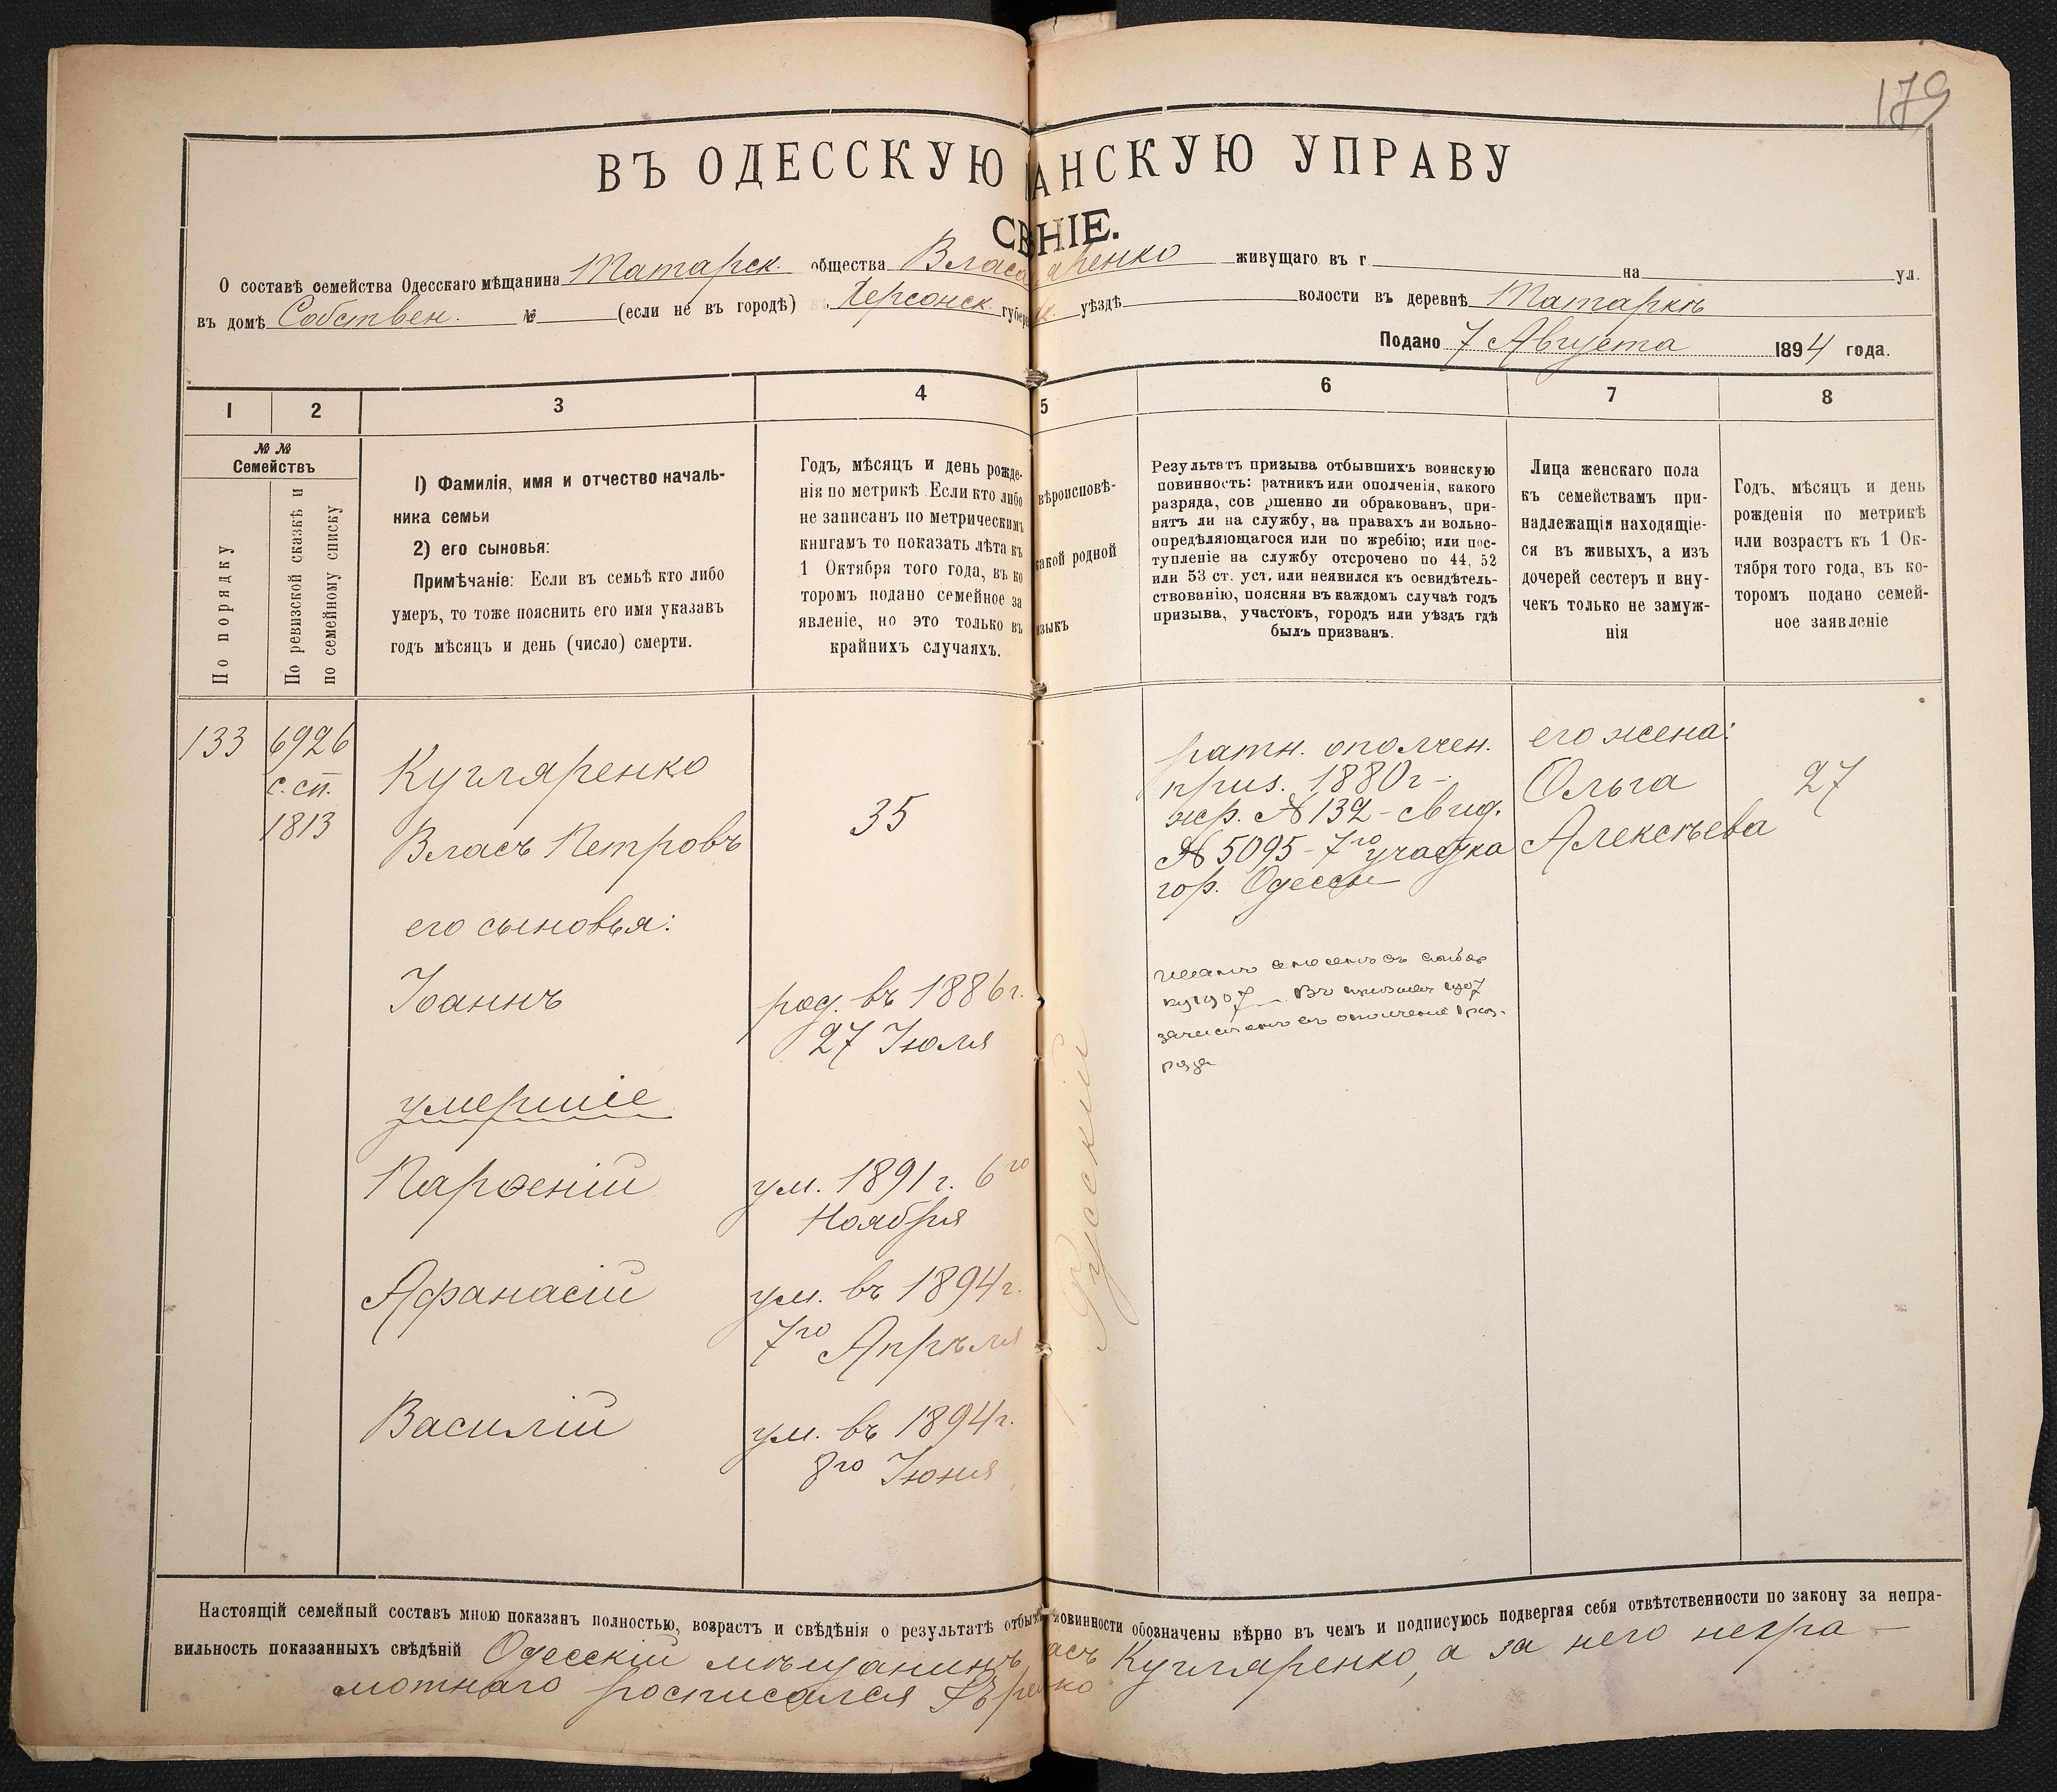 179
ВЪ ОДЕССКУЮ АНСКУЮ УПРАВУ
СВ НІЕ.
О составѣ семейства Одесскаго мѣщанина Татарск. общества Власа аренко живущаго въ г на ул.
въ домѣ Собствен. № (если не въ городѣ) въ Херсонск. губер уѣздѣ волости въ деревнѣ Татаркѣ
Подано 7 Августа 1894 года.
1 2 3 4 5 6 7 8
№ №
Семействъ
По порядку
По ревизской сказкѣ и
по семейному списку
1) Фамилія, имя и отчество началь-
ника семьи
2) его сыновья:
Примѣчаніе: Если въ семьѣ кто либо
умеръ, то тоже пояснить его имя указавъ
годъ мѣсяцъ и день (число) смерти.
Годъ, мѣсяцъ и день рожде-
нія по метрикѣ Если кто либо
не записанъ по метрическимъ
книгамъ то показать лѣта къ
1 Октября того года, въ ко
торомъ подано семейное за
явленіе, но это только въ
крайнихъ случаяхъ.
вѣроисповѣ-
акой родной
языкъ
Результатъ призыва отбывшихъ воинскую
повинность: ратникъ или ополченія, какого
разряда, сов ршенно ли обракованъ, при-
нятъ ли на службу, на правахъ ли вольно-
опредѣляющагося или по жребію; или пос-
тупленіе на службу отсрочено по 44, 52
или 53 ст. уст. или неявился къ освидѣтель-
ствованію, поясняя въ каждомъ случаѣ годъ
призыва, участокъ, городъ или уѣздъ гдѣ
былъ призванъ.
Лица женскаго пола
къ семействамъ при-
надлежащія находящіе-
ся въ живыхъ, а изъ
дочерей сестеръ и вну-
чекъ только не замуж-
нія
Годъ, мѣсяцъ и день
рожденія по метрикѣ
или возрастъ къ 1 Ок-
тября того года, въ ко-
торомъ подано семей-
ное заявленіе
133
6926
с. сп.
1813
Кугляренко
Власъ Петровъ
35
ратн. ополчен.
приз. 1880г-
жр. № 132 - свид.
№ 5095 - 7го участка
гор. Одессы
его жена:
Ольга
Алексѣева
27
его сыновья:
Іоаннъ
род. въ 1886г.
27 Іюля
1907 Въ 1907
зачисленъ въ ополченіе 1 раз-
ряда
умершіе
Парѳеній
ум. 1891 г. 6го
Ноября
Афанасій
ум. въ 1894г.
7го Апрѣля
Василій
ум. въ 1894г.
8го Іюня
Русскій
Настоящій семейный составъ мною показанъ полностью, возрастъ и свѣдѣнія о результатѣ отбы повинности обозначены вѣрно въ чемъ и подписуюсь подвергая себя отвѣтственности по закону за непра-
вильность показанныхъ свѣдѣній Одесскій мѣщанинъ асъ Кугляренко, а за него негра-
мотнаго росписался